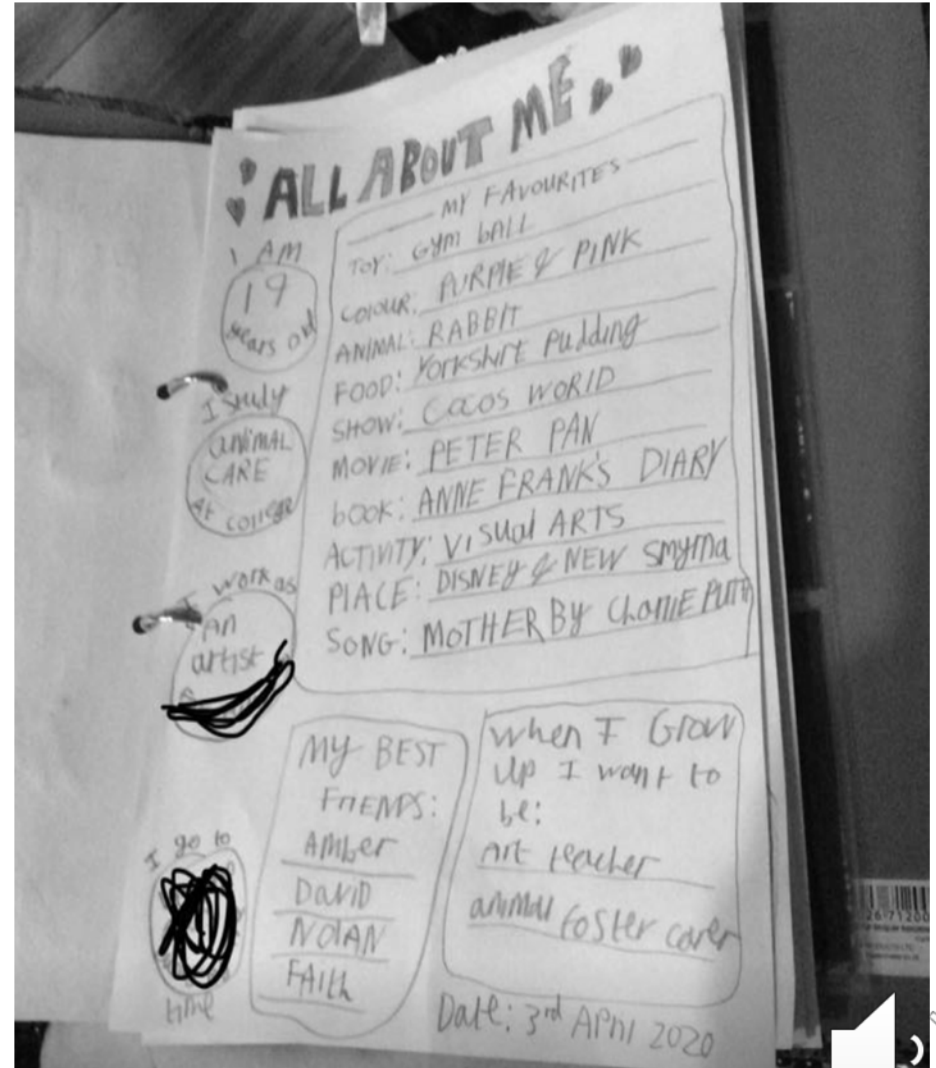 ALL ABOUT ME
I AM
19
years old
I study
ANIMAL
CARE
At college
I work as
An
artist
I go to
time
MY FAVOURITES
TOY: GYM bALL
COLOUR: PURPLE & PINK
ANIMAL: RABBIT
FOOD: Yorkshire Pudding
SHOW: COCOS WORLD
MOVIE: PETER PAN
bOOK: ANNE FRANK'S DIARY
ACTIVITY: VISUAl ARTS
PLACE: DISNEY & NEW Smyrna
SONG: MOTHER BY CharlIE PUTH
MY BEST
FrIENDS:
AMber
DAVID
NOLAN
FAIth
when I Grow
Up I want to
be:
Art teacher
animal foster carer
Date: 3rd April 2020
26 71200